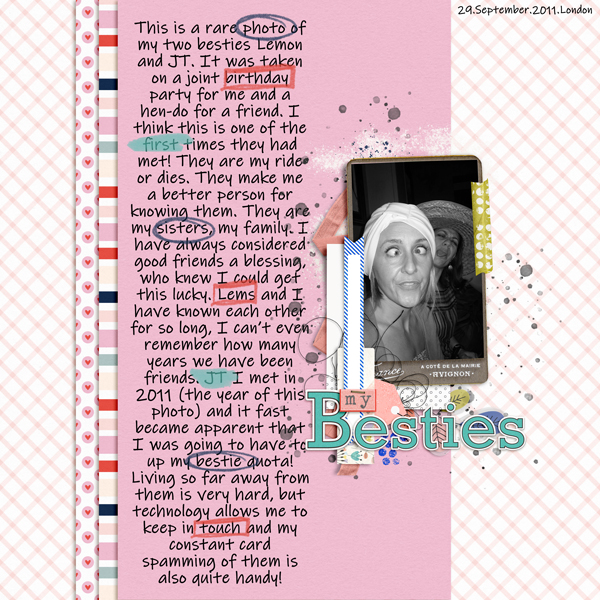 29.September.2011.London
This is a rare photo of
my two besties Lemon
and JT. It was taken
on a joint birthday
party for me and a
hen-do for a friend. I
think this is one of the
first times they had
met! They are my ride
or dies. They make me
a better person for
knowing them. They are
my sisters, my family. I
have always considered
good friends a blessing,
who knew I could get
this lucky. Lems and I
have known each other
for so long, I can't even
remember how many
years we have been
friends. JT I met in
2011 (the year of this
photo) and it fast
became apparent that
I was going to have to
up my bestie quota!
Living so far away from
them is very hard, but
technology allows me to
keep in touch and my
constant card
spamming of them is
also quite handy!
A COTÉ DE LA MAIRIE
AVIGNON
my
Besties